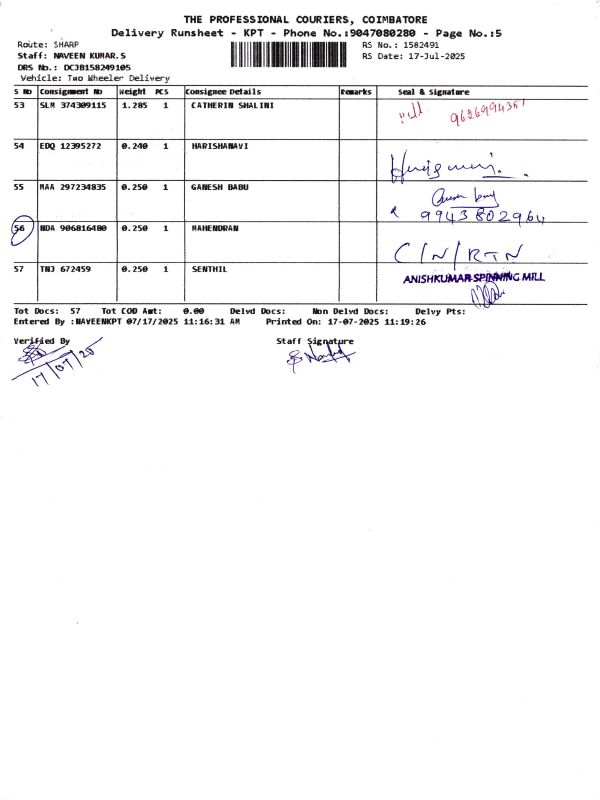 THE PROFESSIONAL COURIERS, COIMBATORE
Delivery Runsheet - KPT - Phone No.:9047080280 - Page No.:5
Route: SHARP
RS No.: 1582491
Staff: NAVEEN KUMAR.S
RS Date: 17-Jul-2025
DRS No.: DCJB158249105
Vehicle: Two Wheeler Delivery
S No Consignment No Weight PCS Consignee Details Remarks Seal & Signature
53 SLM 374309115 1.285 1 CATHERIN SHALINI
54 EDQ 12395272 0.240 1 HARISHANAVI
55 MAA 297234835 0.250 1 GANESH BABU
9943802964
56 NDA 906816480 0.250 1 MAHENDRAN C/N/RTN
57 TNJ 672459 0.250 1 SENTHIL ANISHKUMAR SPINNING MILL
Tot Docs: 57 Tot COD Amt: 0.00 Delvd Docs: Non Delvd Docs: Delvy Pts:
Entered By :NAVEENKPT 07/17/2025 11:16:31 AM Printed On: 17-07-2025 11:19:26
Verified By Staff Signature
17/07/25